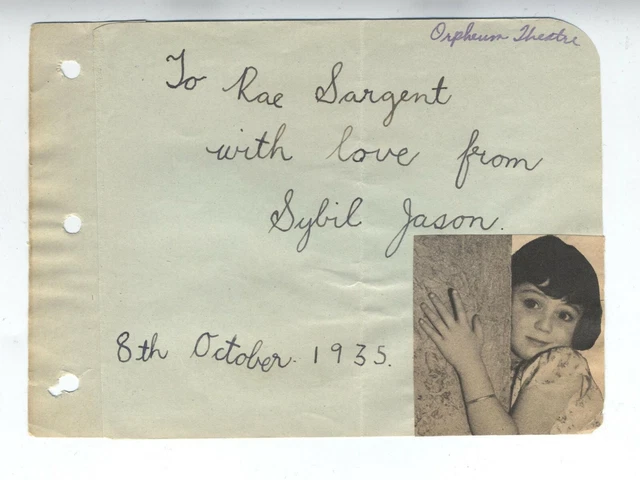 Orpheum Theatre
To Rae Sargent
with love from
Sybil Jason.
8th October. 1935.